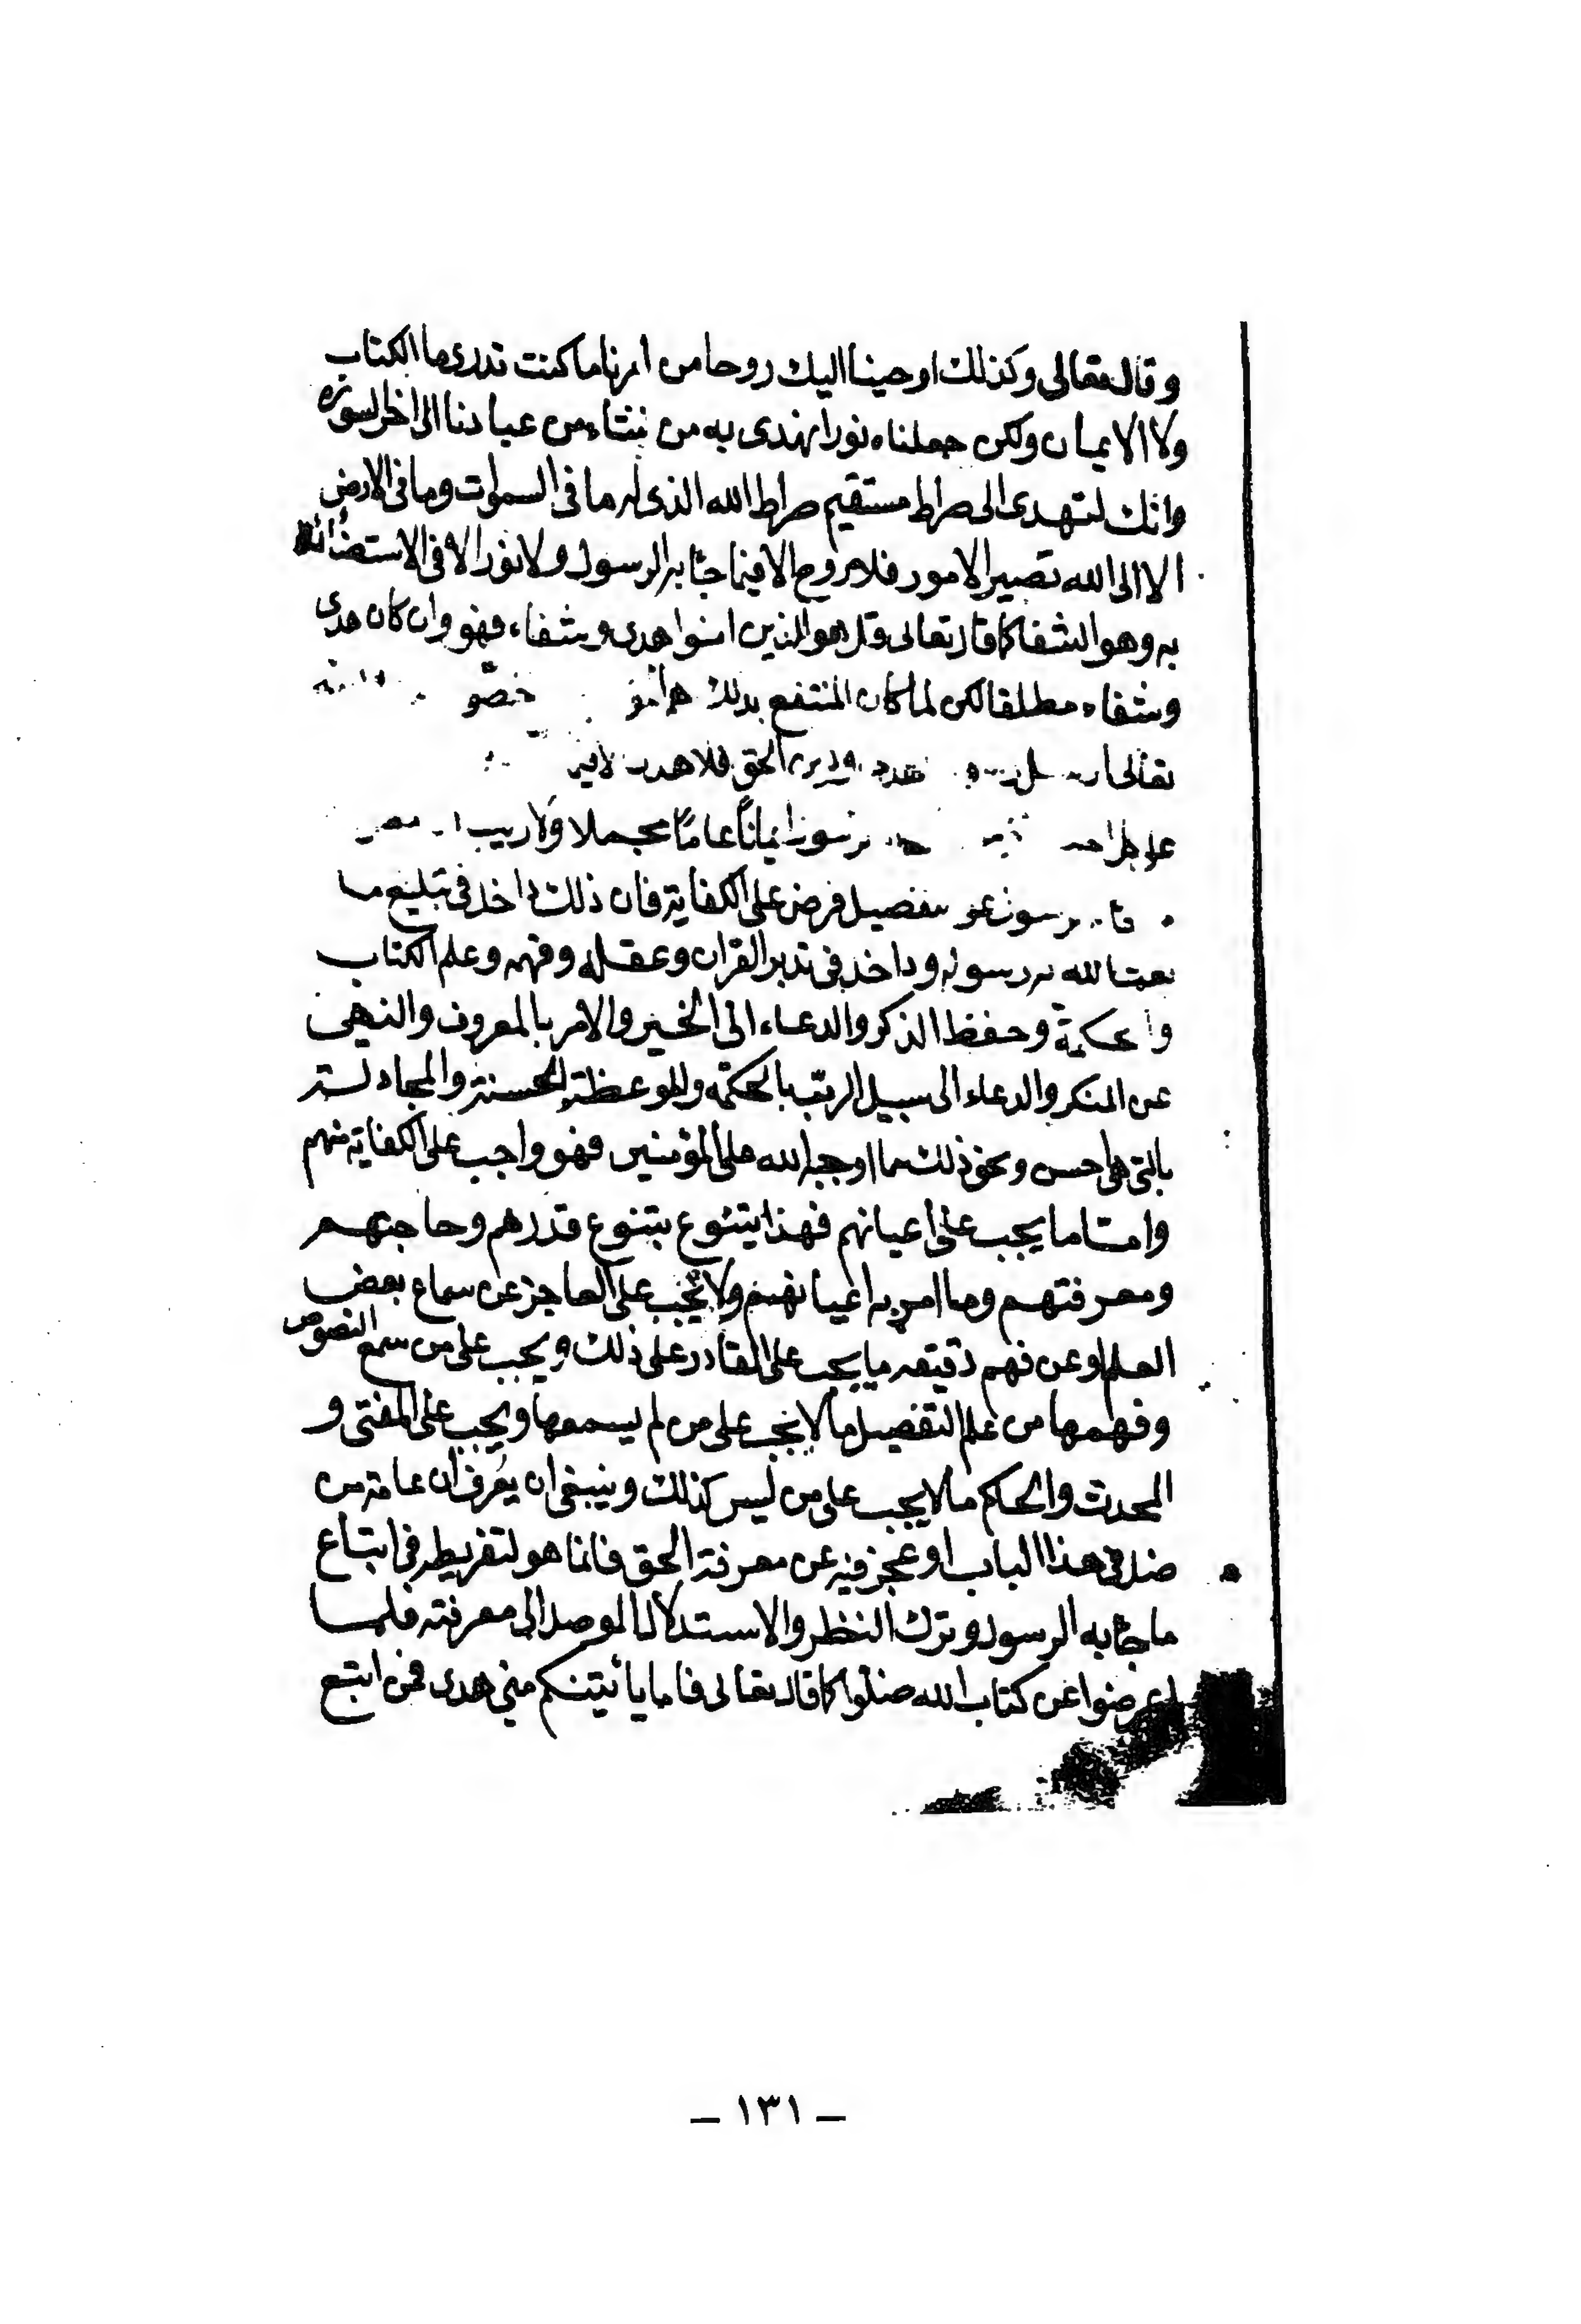 وقال تعالى وكذلك اوحينا اليك روحا من امرنا ما كنت تدرى ما الكتاب
ولا الايمان ولكن جعلناه نورا نهدى به من نشاء من عبادنا الى اخر السورة
وانك لتهدى الى صراط مستقيم صراط الله الذى له ما فى السموات وما فى الارض
الا الى الله تصير الامور فلا روح الا فيما جاء به الرسول ولا نور الا فى الاستضائة
به وهو الشفا كما قال تعالى قل هو للذين امنوا هدى وشفاء فهو وان كان هدى
وشفاء مطلقا لكن لما كان المنتفع بذلك
الحق فلا
ايمانا عاما مجملا ولا ريب
فرض على الكفاية فان ذلك داخل فى تبليغ ما
الله به رسوله وداخل فى تدبر القران وعقله وفهمه وعلم الكتاب
والحكمة وحفظ الذكر والدعاء الى الخير والامر بالمعروف والنهى
عن المنكر والدعاء الى سبيل الرب بالحكمة والموعظة الحسنة والمجادلة
بالتى هى احسن ونحو ذلك مما اوجبه الله على المؤمنين فهو واجب على الكفاية منهم
وامتا ما يجب على اعيانهم فهذا يتنوع بتنوع قدرهم وحاجتهم
ومعرفتهم وما امر به اعيانهم ولا يجب على العاجز عن سماع بعض
العلم او عن فهم دقيقه ما يجب على القادر على ذلك ويجب على من سمع النصوص
وفهمها من علم التفصيل ما لا يجب على من لم يسمعها ويجب على المفتى و
المحدث والحاكم ما لا يجب على من ليس كذلك وينبغى ان يعرف ان عامة من
ضل فى هذا الباب او عجز فيه عن معرفة الحق فانما هو لتفريطه فى اتباع
ما جاء به الرسول وترك النظر والاستدلال الموصل الى معرفته فلما
اعرضوا عن كتاب الله ضلوا كما قال تعالى فاما يأتينكم منى هدى فمن اتبع
– ١٣١ –